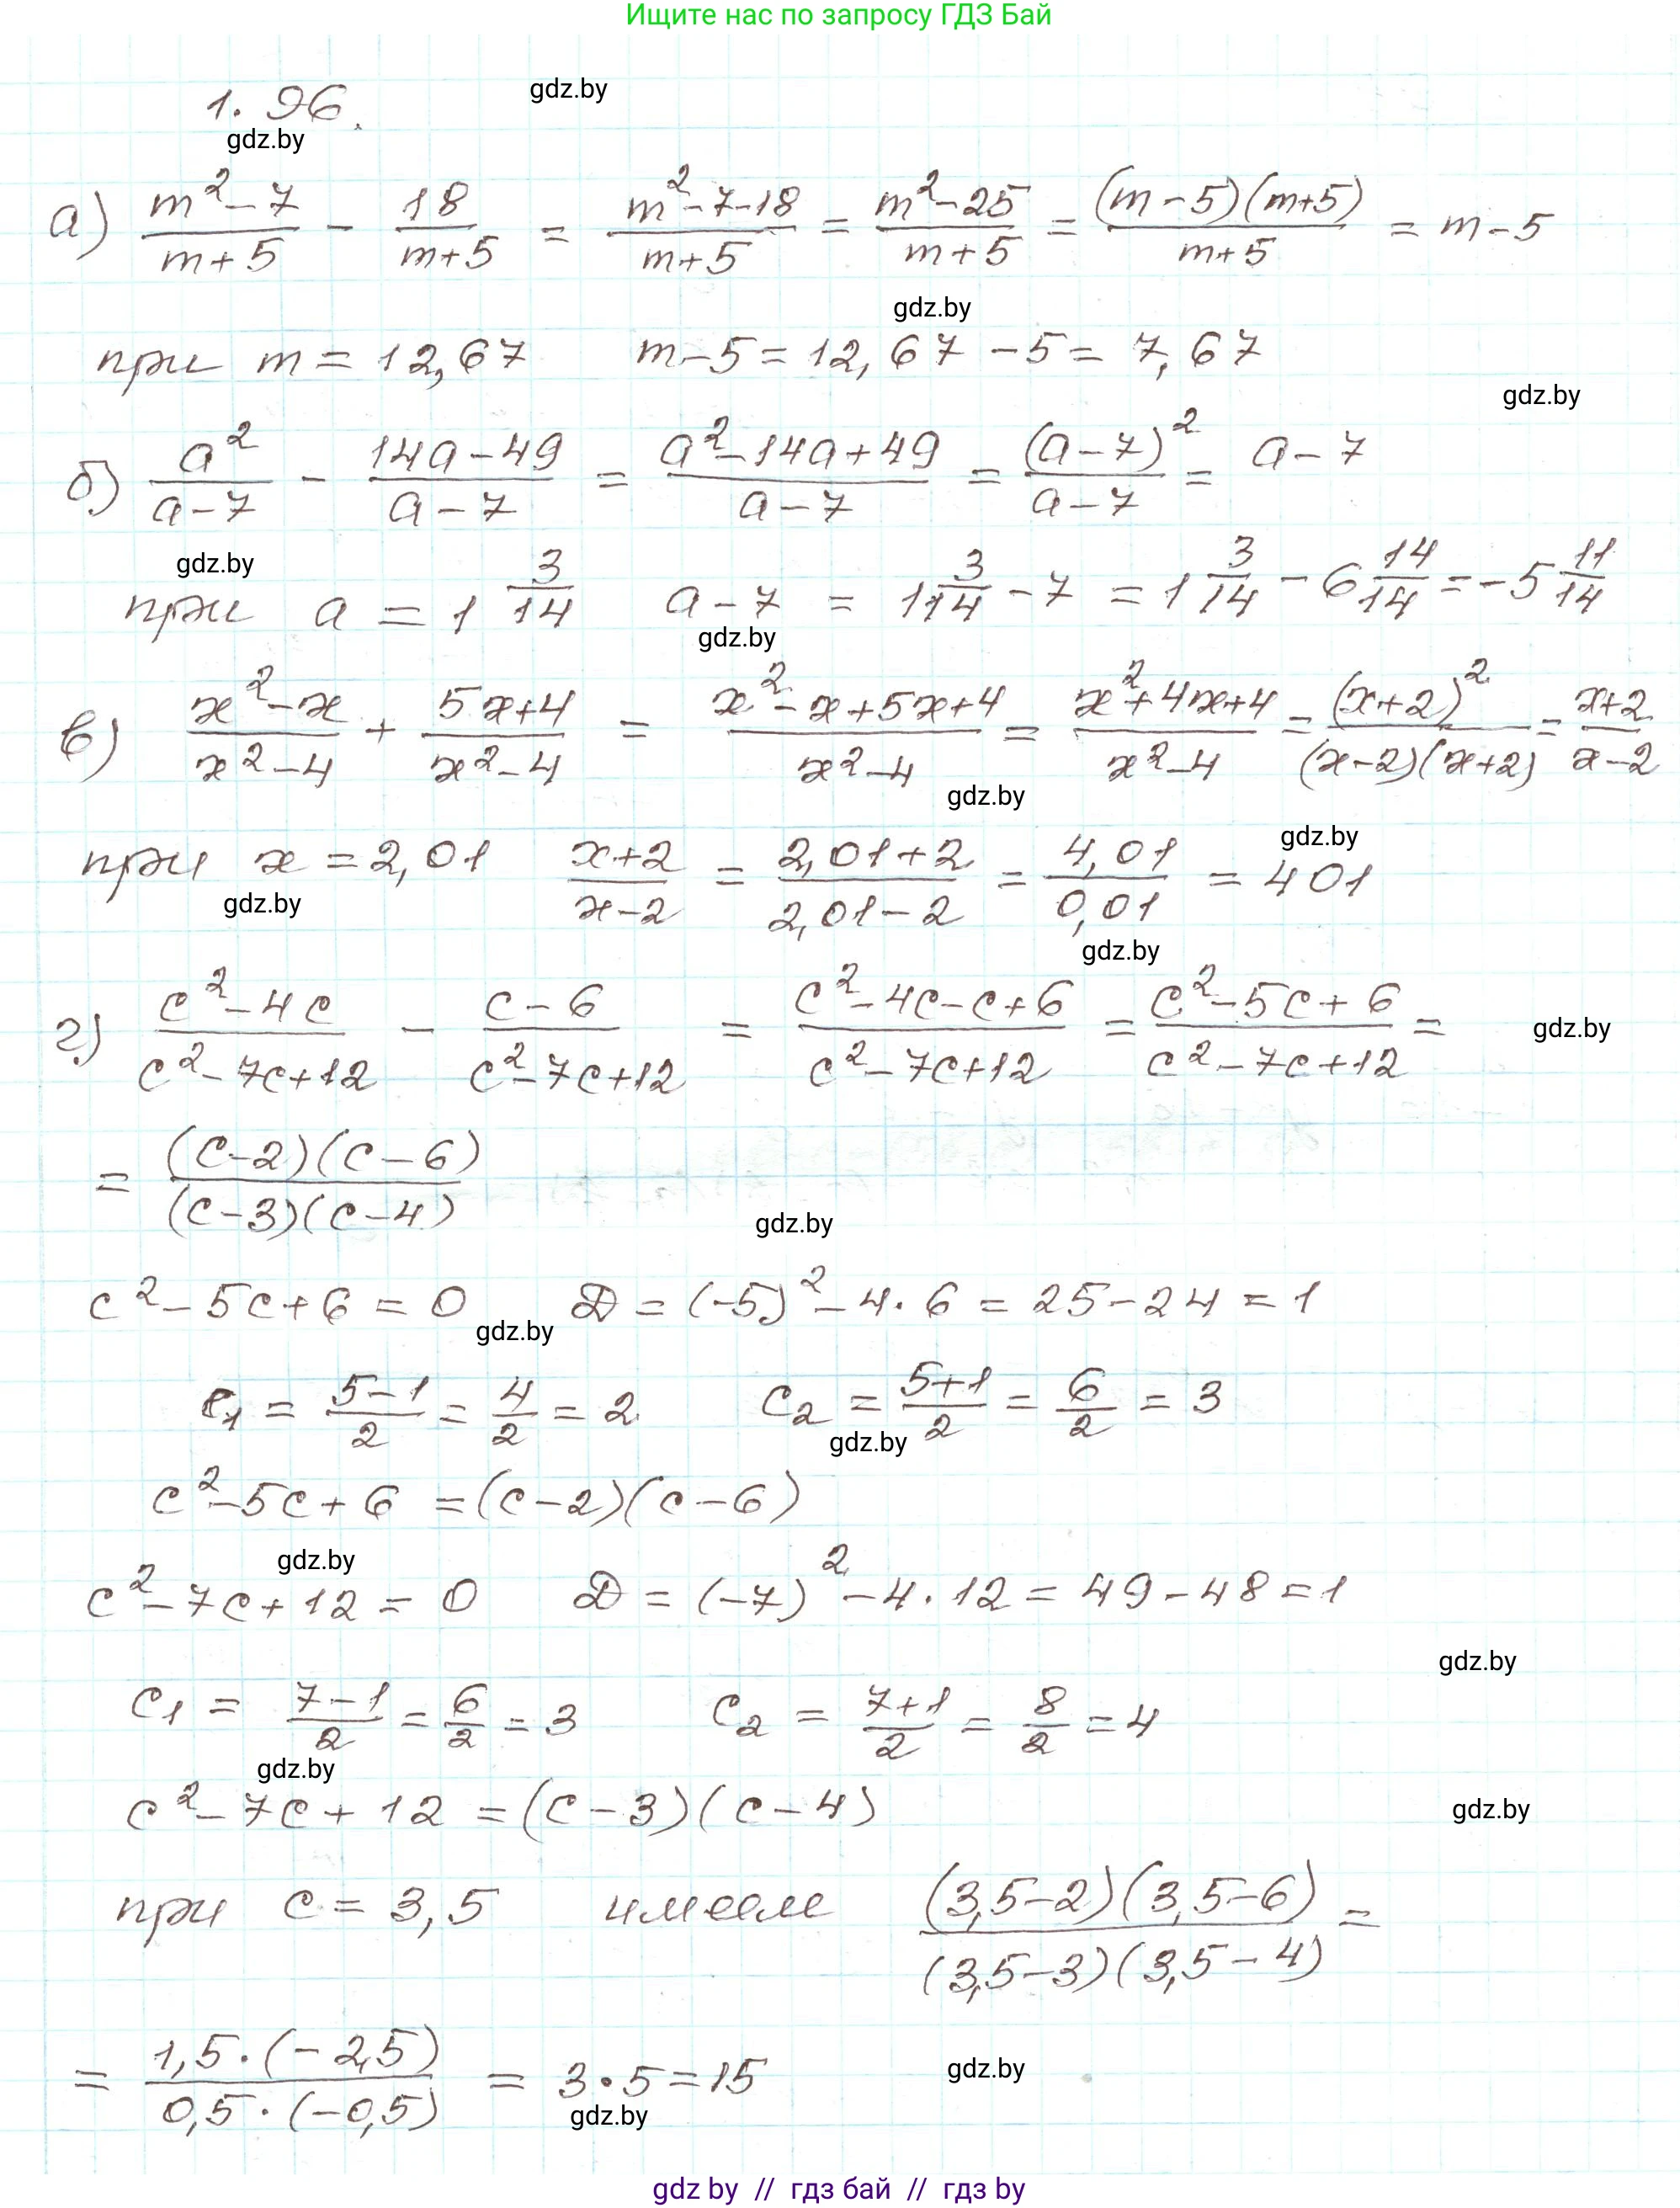 Ищите нас по запросу ГДЗ Бай
gdz.by
1. 96.
gdz.by
а) (m² - 7)/(m + 5) - 18/(m + 5) = (m² - 7 - 18)/(m + 5) = (m² - 25)/(m + 5) = (m - 5)(m + 5)/(m + 5) = m - 5
gdz.by
при m = 12,67 m - 5 = 12,67 - 5 = 7,67
gdz.by
б) a²/(a - 7) - (14a - 49)/(a - 7) = (a² - 14a + 49)/(a - 7) = (a - 7)²/(a - 7) = a - 7
gdz.by
при a = 1 3/14 a - 7 = 1 3/14 - 7 = 1 3/14 - 6 14/14 = -5 11/14
gdz.by
в) (x² - x)/(x² - 4) + (5x + 4)/(x² - 4) = (x² - x + 5x + 4)/(x² - 4) = (x² + 4x + 4)/(x² - 4) = (x + 2)²/((x - 2)(x + 2)) = (x + 2)/(x - 2)
gdz.by
gdz.by
при x = 2,01 (x + 2)/(x - 2) = (2,01 + 2)/(2,01 - 2) = 4,01/0,01 = 401
gdz.by
gdz.by
г) (c² - 4c)/(c² - 7c + 12) - (c - 6)/(c² - 7c + 12) = (c² - 4c - c + 6)/(c² - 7c + 12) = (c² - 5c + 6)/(c² - 7c + 12) =
gdz.by
= (c - 2)(c - 6)/((c - 3)(c - 4))
gdz.by
c² - 5c + 6 = 0 D = (-5)² - 4 · 6 = 25 - 24 = 1
gdz.by
c₁ = (5 - 1)/2 = 4/2 = 2 c₂ = (5 + 1)/2 = 6/2 = 3
gdz.by
c² - 5c + 6 = (c - 2)(c - 6)
gdz.by
c² - 7c + 12 = 0 D = (-7)² - 4 · 12 = 49 - 48 = 1
gdz.by
c₁ = (7 - 1)/2 = 6/2 = 3 c₂ = (7 + 1)/2 = 8/2 = 4
gdz.by
c² - 7c + 12 = (c - 3)(c - 4)
gdz.by
при c = 3,5 имеем (3,5 - 2)(3,5 - 6)/((3,5 - 3)(3,5 - 4)) =
= 1,5 · (-2,5)/(0,5 · (-0,5)) = 3 · 5 = 15
gdz.by
gdz.by
gdz by // гдз бай // гдз by